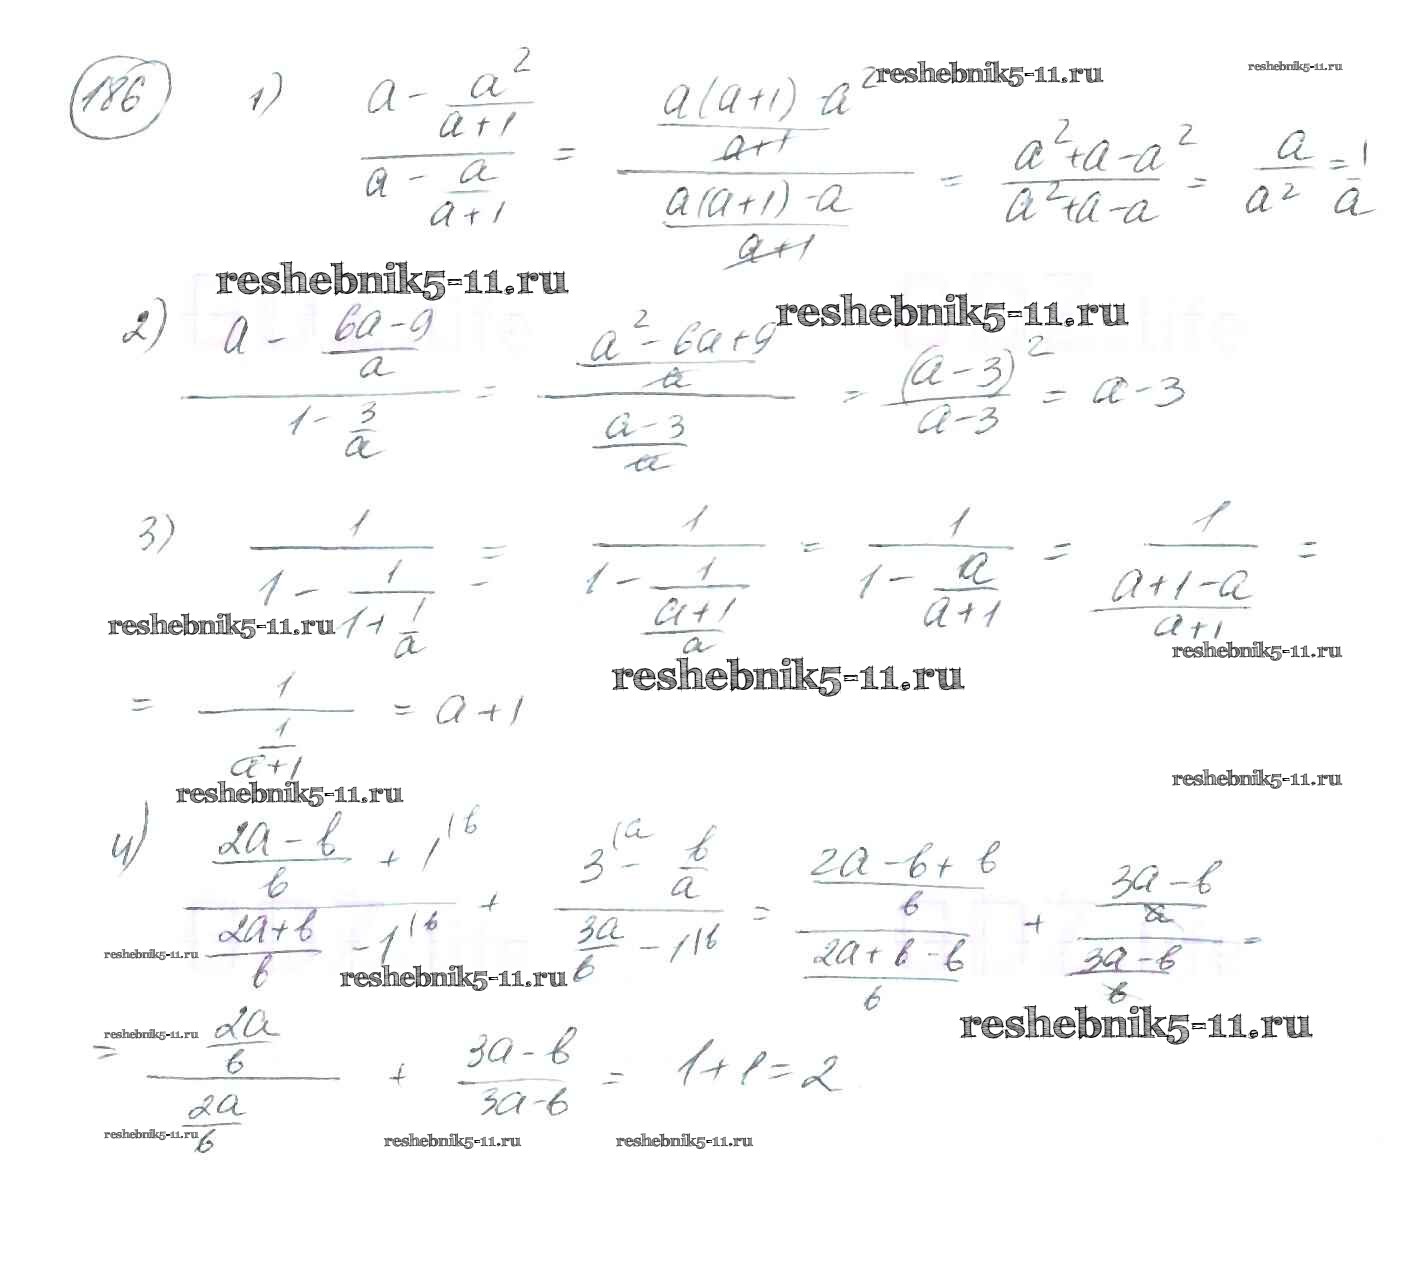 186 1) (a - a²/(a+1))/(a - a/(a+1)) = ((a(a+1) - a²)/(a+1))/((a(a+1) - a)/(a+1)) = (a²+a-a²)/(a²+a-a) = a/a² = 1/a
reshebnik5-11.ru reshebnik5-11.ru
reshebnik5-11.ru reshebnik5-11.ru
2) (a - (6a-9)/a)/(1 - 3/a) = ((a² - 6a + 9)/a)/((a-3)/a) = (a-3)²/(a-3) = a-3
3) 1/(1 - 1/(1 + 1/a)) = 1/(1 - 1/((a+1)/a)) = 1/(1 - a/(a+1)) = 1/((a+1-a)/(a+1)) =
reshebnik5-11.ru reshebnik5-11.ru reshebnik5-11.ru
= 1/(1/(a+1)) = a+1
reshebnik5-11.ru reshebnik5-11.ru
4) ((2a-b)/b + 1^(b)/((2a+b)/b - 1^(b) + (3^(a - b/a)/(3a/b - 1^(b) = ((2a-b+b)/b)/((2a+b-b)/b) + ((3a-b)/a)/((3a-b)/b) =
reshebnik5-11.ru reshebnik5-11.ru reshebnik5-11.ru
= (2a/b)/(2a/b) + (3a-b)/(3a-b) = 1+1=2
reshebnik5-11.ru
reshebnik5-11.ru reshebnik5-11.ru reshebnik5-11.ru